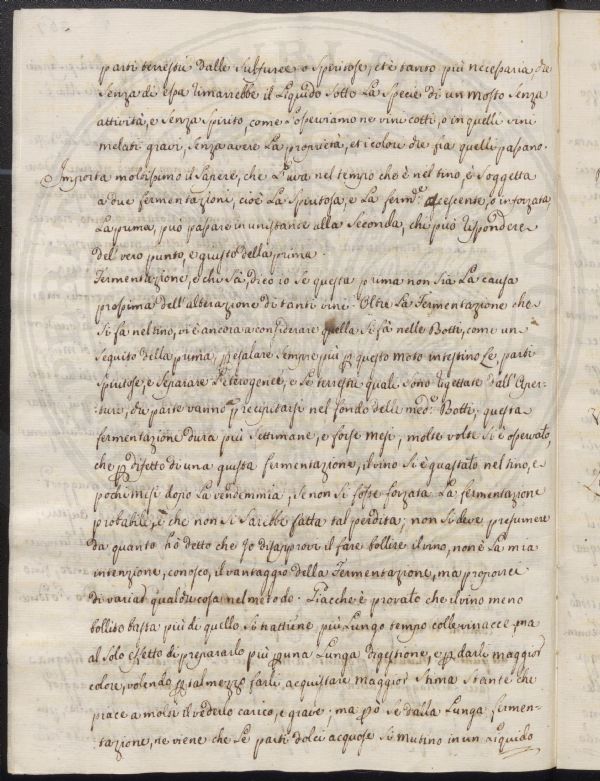 parti terrestri dalle sulfuree, o spiritose, et è tanto più necessaria che
senza di essa rimarrebbe il Liquido sotto La specie di un mosto senza
attività, e senza spirito, come L'osserviamo ne vini cotti, o in quelli vini
melati gravi, senza avere La proprietà, et il colore che fra quelli passano.
Importa moltissimo il sapere, che L'uva nel tempo che è nel tino, è soggetta
a due fermentazioni, cioè La spiritosa, e La ferm.e acescente, o inforzata,
La prima, può passare in un istante alla seconda, chi può rispondere
del vero punto, e giusto della prima
Fermentazione, e chi sà, dico io se questa prima non sia La causa
prossima dell'alterazione di tanti vini. Oltre La Fermentazione che
si fa nel tino, vi è ancora a considerare quella si fà nelle Botti, come un
seguito della prima, p esalare sempre più p questo moto intestino Le parti
spiritose, e separare L'eterogenee, e Le terrestri quali sono rigettate dall'Aper-
:ture, che parte vanno à precipitarsi nel fondo delle med.e Botti; questa
fermentazione dura più settimane, e forse mesi, molte volte si è osservato,
che p difetto di una giusta fermentazione, il vino si è guastato nel tino, e
pochi mesi dopo La vendemmia, se non si fosse forzata La fermentazione
probabile, è che non si sarebbe fatta tal perdita; non si deve presumere
da quanto hò detto che Io disapprovi il fare bollire il vino, non è La mia
intenzione, conosco, il vantaggio della Fermentazione, ma proporrei
di variar qualche cosa nel metodo. Giacche è provato che il vino meno
bollito basta più di quello si trattiene più Lungo tempo colle vinacce p ma
al solo effetto di prepararlo più p una Lunga digestione, e p darli maggior
colore, volendo p tal mezzo farli acquistare maggior stima stante che
piace a molti il vederlo carico, e grave; ma p ò se dalla Lunga fermen-
:tazione, ne viene che Le parti dolci acquose si mutino in un Liquido